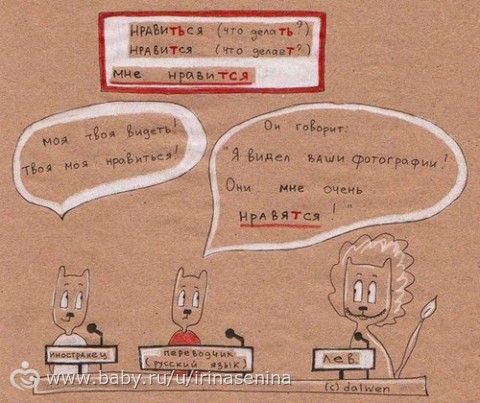 нравиться (что делать?)
нравится (что делает?)
мне нравится
моя твоя видеть!
твоя моя нравиться!
Он говорит:
"Я видел ваши фотографии!
Они мне очень
нравятся!"
иностранец
переводчик
(русский язык)
Лев
(c) dalwen
www.baby.ru/u/irinasenina